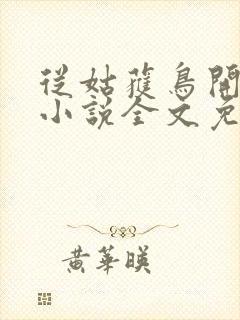 從姑獲鳥開
小說全文免
黃華暎